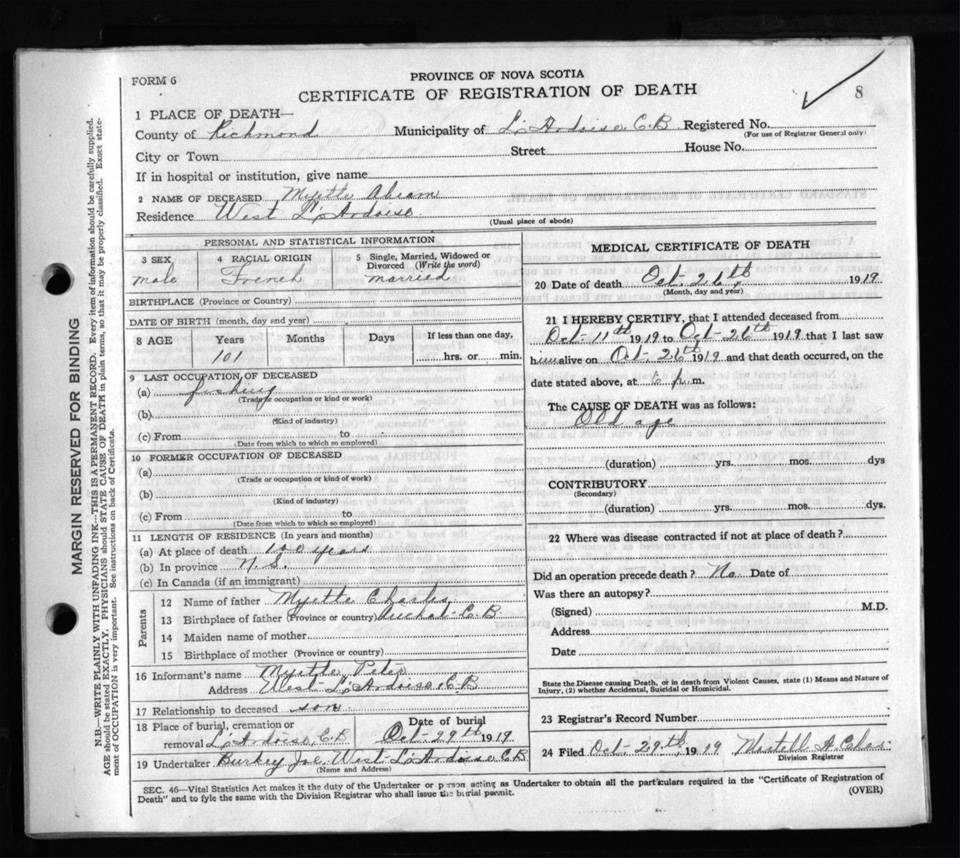 FORM 6
PROVINCE OF NOVA SCOTIA
CERTIFICATE OF REGISTRATION OF DEATH
8
1 PLACE OF DEATH—
County of Richmond Municipality of L'Ardoise C.B Registered No.
(For use of Registrar General only)
City or Town Street House No.
If in hospital or institution, give name
2 NAME OF DECEASED Myette Abram
Residence West L'Ardoise.
(Usual place of abode)
PERSONAL AND STATISTICAL INFORMATION
3 SEX male
4 RACIAL ORIGIN French
5 Single, Married, Widowed or Divorced (Write the word) married
BIRTHPLACE (Province or Country)
DATE OF BIRTH (month, day and year)
8 AGE Years 101 Months Days If less than one day, hrs. or min.
9 LAST OCCUPATION OF DECEASED
(a) fishing
(Trade or occupation or kind or work)
(b)
(Kind of industry)
(c) From to
(Date from which to which so employed)
10 FORMER OCCUPATION OF DECEASED
(a)
(Trade or occupation or kind of work)
(b)
(Kind of industry)
(c) From to
(Date from which to which so employed)
11 LENGTH OF RESIDENCE (In years and months)
(a) At place of death years
(b) In province N.S.
(c) In Canada (if an immigrant)
Parents
12 Name of father Myette Charles
13 Birthplace of father (Province or country) C.B.
14 Maiden name of mother
15 Birthplace of mother (Province or country)
16 Informant's name Myette Peter
Address West L'Ardoise, C.B
17 Relationship to deceased son.
18 Place of burial, cremation or removal L'Ardoise, C.B
Date of burial Oct-29th 1919.
19 Undertaker Joe, West L'Ardoise C.B
(Name and Address)
MEDICAL CERTIFICATE OF DEATH
20 Date of death Oct-26th, 1919
(Month, day and year)
21 I HEREBY CERTIFY, that I attended deceased from
Oct-11th 1919 to Oct-26th 1919 that I last saw
him alive on Oct-26th 1919 and that death occurred, on the
date stated above, at 6 p.m.
The CAUSE OF DEATH was as follows:
Old age
(duration) yrs. mos. dys
CONTRIBUTORY
(Secondary)
(duration) yrs. mos. dys.
22 Where was disease contracted if not at place of death?
Did an operation precede death? No Date of
Was there an autopsy?
(Signed) M.D.
Address
Date
State the Disease causing Death, or in death from Violent Causes, state (1) Means and Nature of
Injury, (2) whether Accidental, Suicidal or Homicidal.
23 Registrar's Record Number
24 Filed Oct-29th. 1919
Division Registrar
SEC. 46—Vital Statistics Act makes it the duty of the Undertaker or person acting as Undertaker to obtain all the particulars required in the "Certificate of Registration of
Death" and to fyle the same with the Division Registrar who shall issue the burial permit.
(OVER)
MARGIN RESERVED FOR BINDING
N.B.—WRITE PLAINLY WITH UNFADING INK—THIS IS A PERMANENT RECORD. Every item of information should be carefully supplied.
AGE should be stated EXACTLY. PHYSICIANS should STATE CAUSE OF DEATH in plain terms, so that it may be properly classified. Exact state-
ment of OCCUPATION is very important. See instructions on back of Certificate.